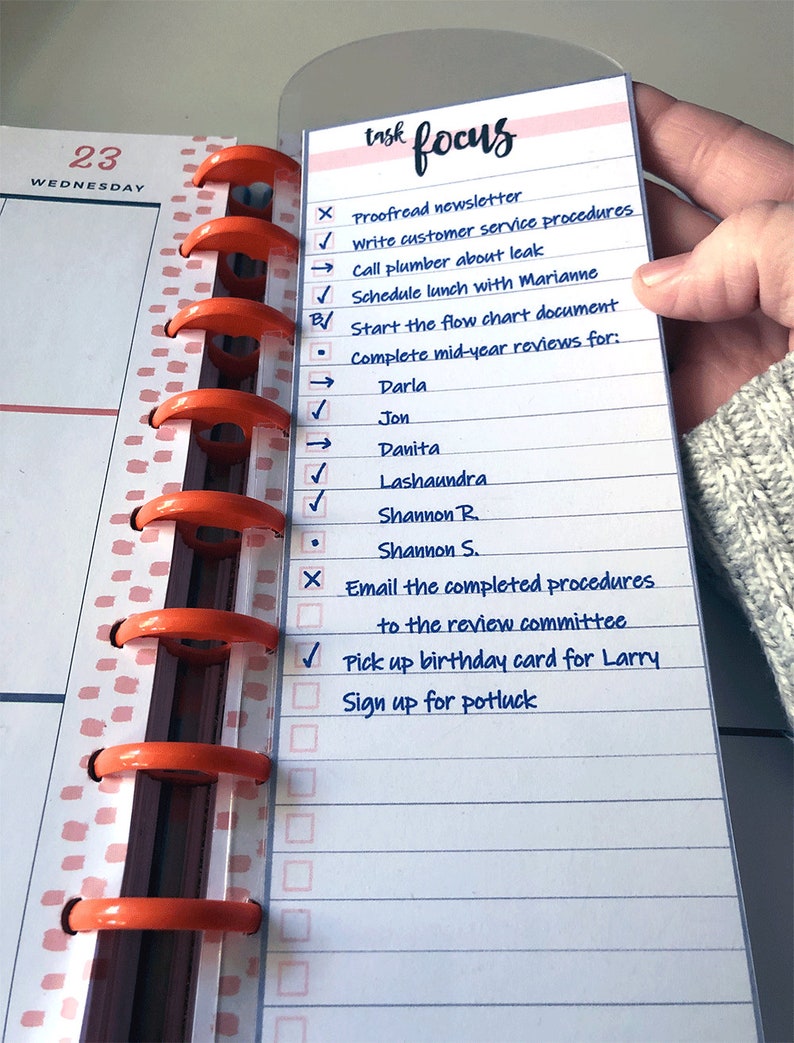 23
WEDNESDAY
task focus
x Proofread newsletter
✓ Write customer service procedures
→ Call plumber about leak
✓ Schedule lunch with Marianne
B✓ Start the flow chart document
• Complete mid-year reviews for:
→ Darla
✓ Jon
→ Danita
✓ Lashaundra
✓ Shannon R.
• Shannon S.
x Email the completed procedures
to the review committee
✓ Pick up birthday card for Larry
Sign up for potluck